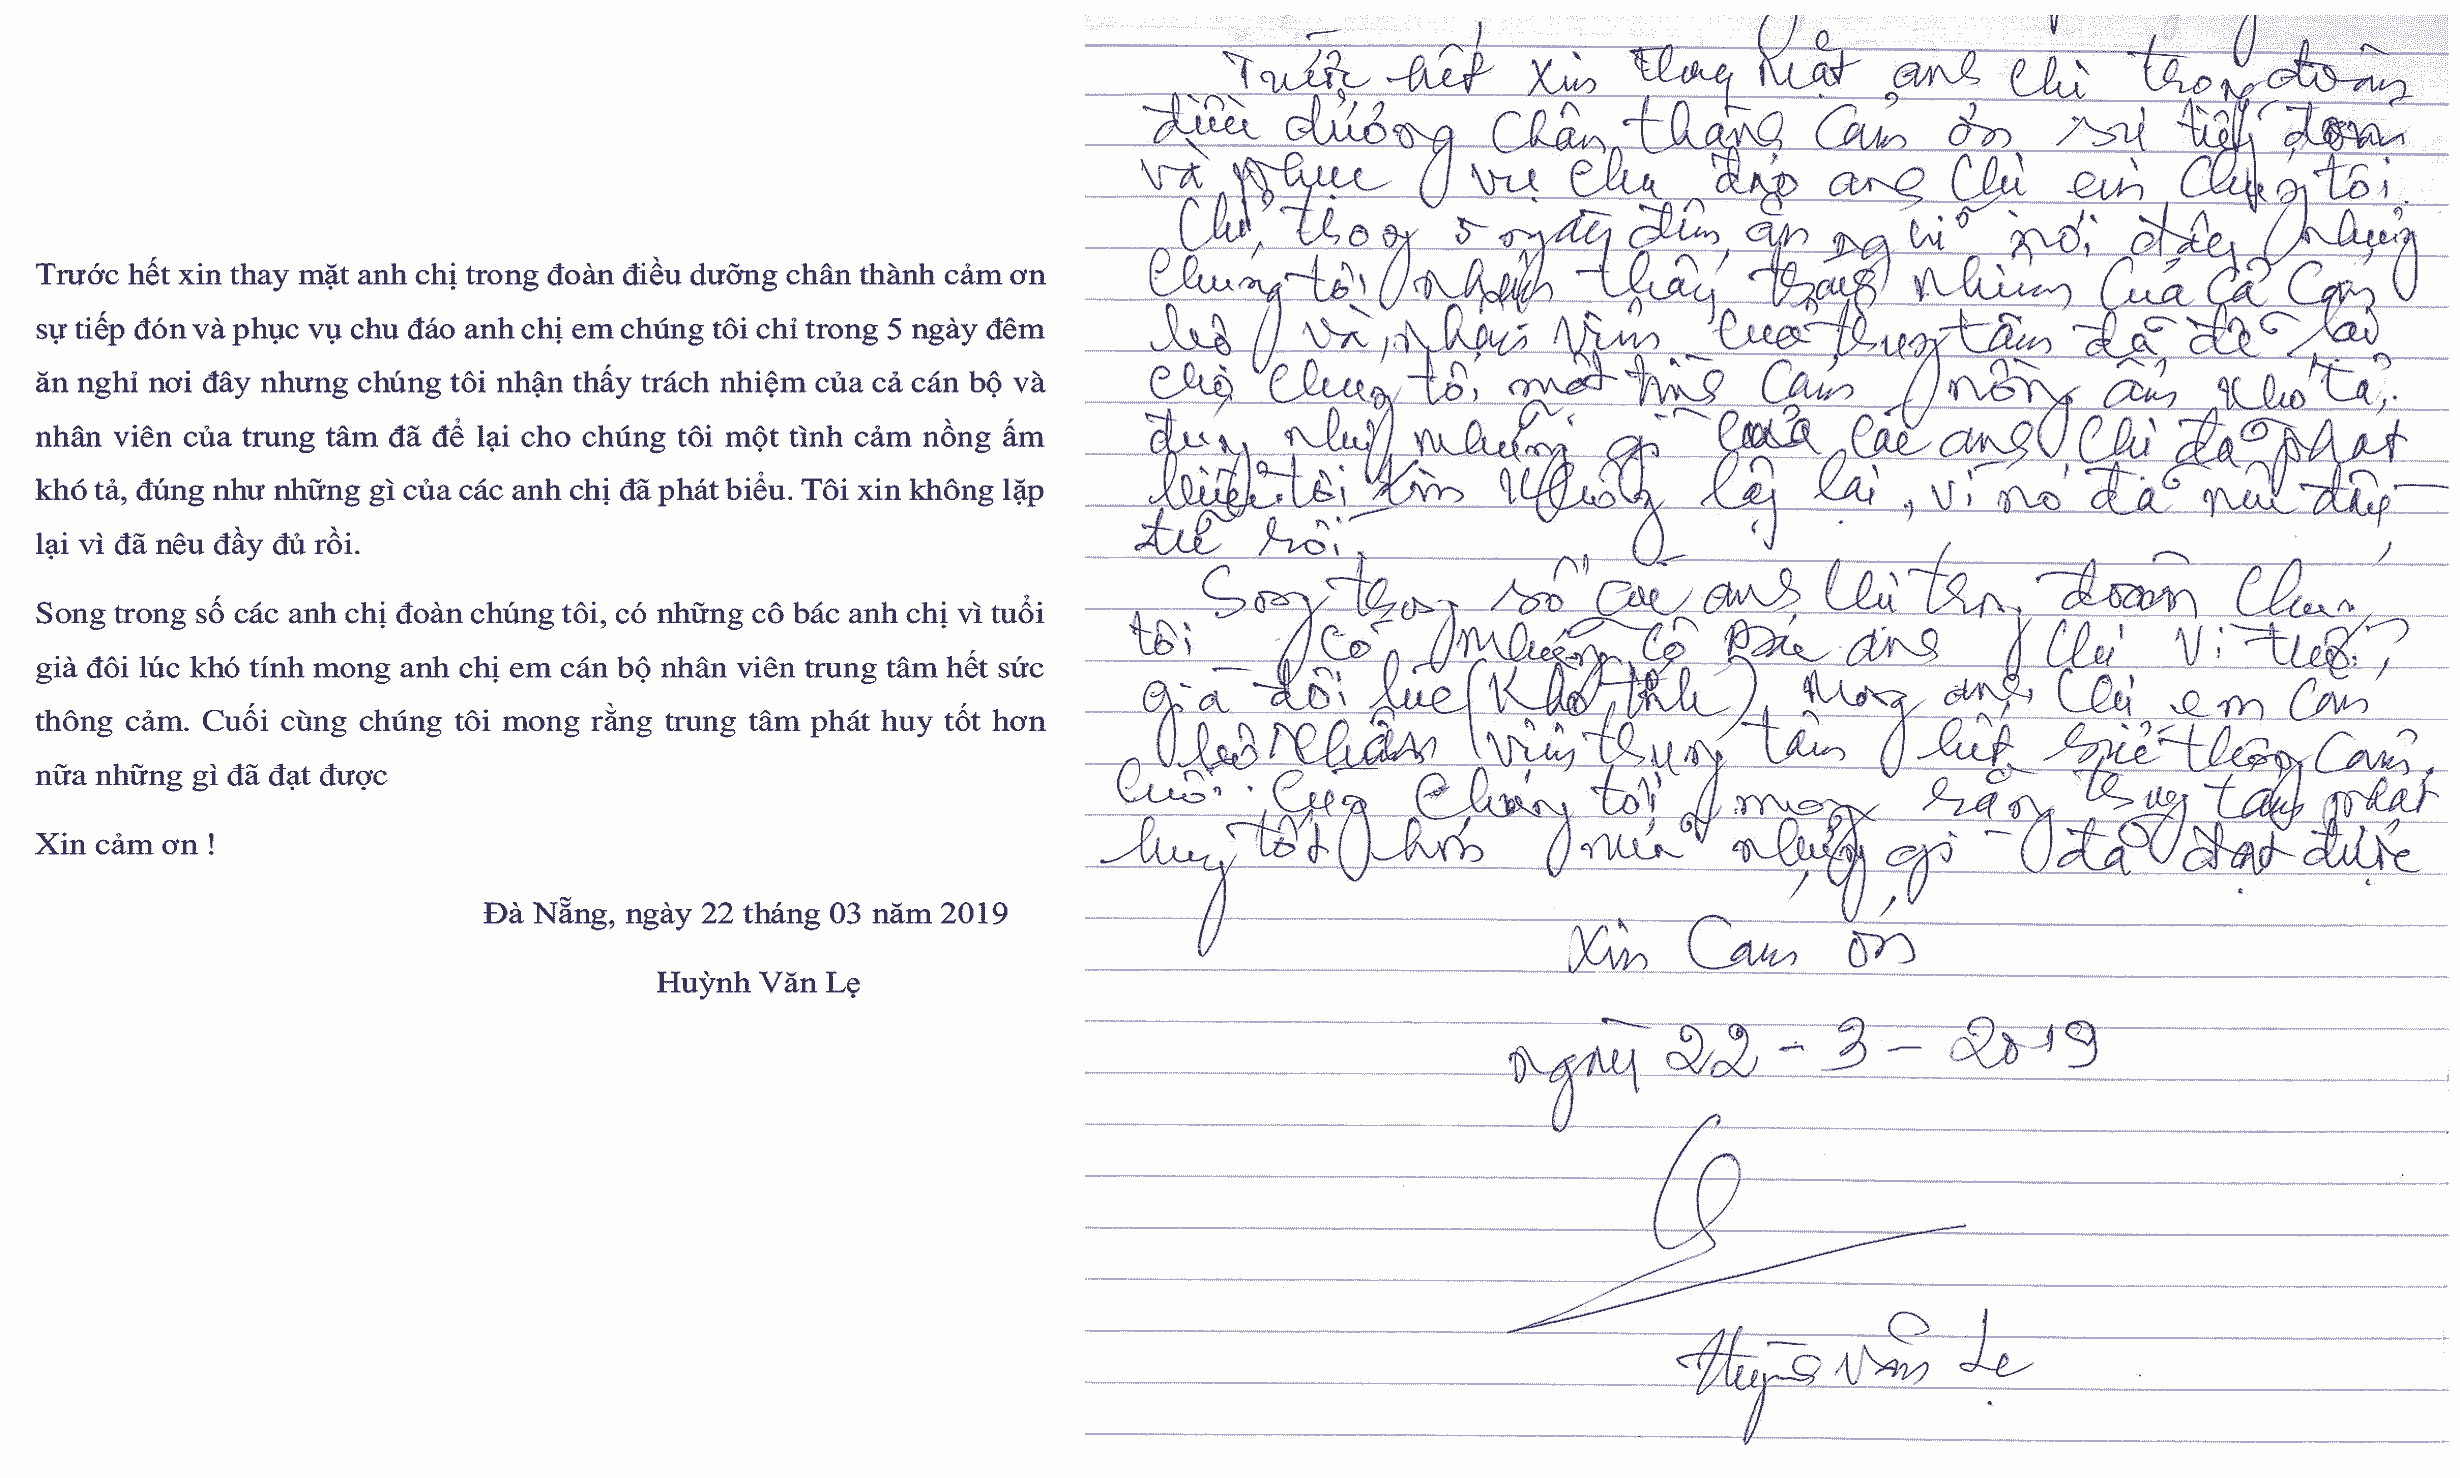 Trước hết xin thay mặt anh chị trong đoàn điều dưỡng chân thành cảm ơn
sự tiếp đón và phục vụ chu đáo anh chị em chúng tôi chỉ trong 5 ngày đêm
ăn nghỉ nơi đây nhưng chúng tôi nhận thấy trách nhiệm của cả cán bộ và
nhân viên của trung tâm đã để lại cho chúng tôi một tình cảm nồng ấm
khó tả, đúng như những gì của các anh chị đã phát biểu. Tôi xin không lặp
lại vì đã nêu đầy đủ rồi.
Song trong số các anh chị đoàn chúng tôi, có những cô bác anh chị vì tuổi
già đôi lúc khó tính mong anh chị em cán bộ nhân viên trung tâm hết sức
thông cảm. Cuối cùng chúng tôi mong rằng trung tâm phát huy tốt hơn
nữa những gì đã đạt được
Xin cảm ơn !
Đà Nẵng, ngày 22 tháng 03 năm 2019
Huỳnh Văn Lẹ
Trước hết xin thay mặt anh chị trong đoàn
điều dưỡng chân thành cảm ơn sự tiếp đoán
và phục vụ chu đáo anh chị em chúng tôi.
Chỉ trong 5 ngày đêm ăn nghĩ nơi đây nhưng
chúng tôi nhận thấy trách nhiệm của cả cán
bộ và nhân viên của trung tâm đã để lại
cho chúng tôi một tình cảm nồng ấm khó tả,
đúng như những gì của các anh chị đã phát
biểu tôi xin không lặp lại, vì nó đã nêu đầy
đủ rồi.
Song trong số các anh chị trong đoàn chúng
tôi có những cô bác anh chị vì tuổi
già đôi lúc (khó tính) mong anh chị em cán
bộ nhân viên trung tâm hết sức thông cảm.
Cuối cùng chúng tôi mong rằng trung tâm phát
huy tốt hơn nữa những gì đã đạt được
Xin cảm ơn
ngày 22 - 3 - 2019
Huỳnh Văn Lẹ